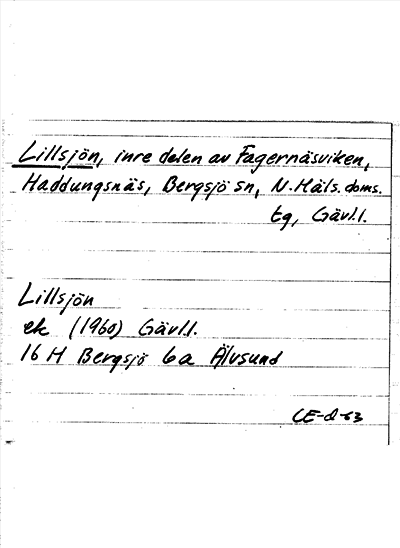 Lillsjön, inre delen av Fagernäsviken,
Haddungsnäs, Bergsjö sn, N. Häls. doms.
tg, Gävl.l.
Lillsjön
ek (1960) Gävl.l.
16 H Bergsjö 6a Älvsund
CE-d-63